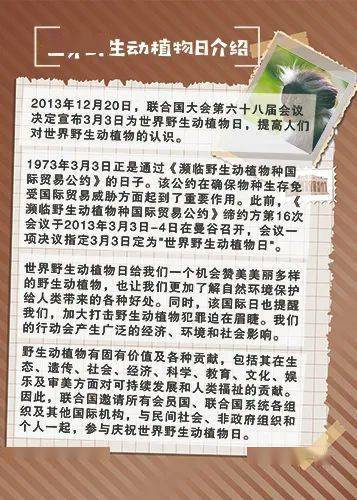 生动植物日介绍
2013年12月20日，联合国大会第六十八届会议
决定宣布3月3日为世界野生动植物日，提高人们
对世界野生动植物的认识。
1973年3月3日正是通过《濒临野生动植物种国
际贸易公约》的日子。该公约在确保物种生存免
受国际贸易威胁方面起到了重要作用。此前，《
濒临野生动植物种国际贸易公约》缔约方第16次
会议于2013年3月3日-4日在曼谷召开，会议一
项决议指定3月3日定为"世界野生动植物日"。
世界野生动植物日给我们一个机会赞美美丽多样
的野生动植物，也让我们更加了解自然环境保护
给人类带来的各种好处。同时，该国际日也提醒
我们，加大打击野生动植物犯罪迫在眉睫。我们
的行动会产生广泛的经济、环境和社会影响。
野生动植物有固有价值及各种贡献，包括其在生
态、遗传、社会、经济、科学、教育、文化、娱
乐及审美方面对可持续发展和人类福祉的贡献。
因此，联合国邀请所有会员国、联合国系统各组
织及其他国际机构，与民间社会、非政府组织和
个人一起，参与庆祝世界野生动植物日。